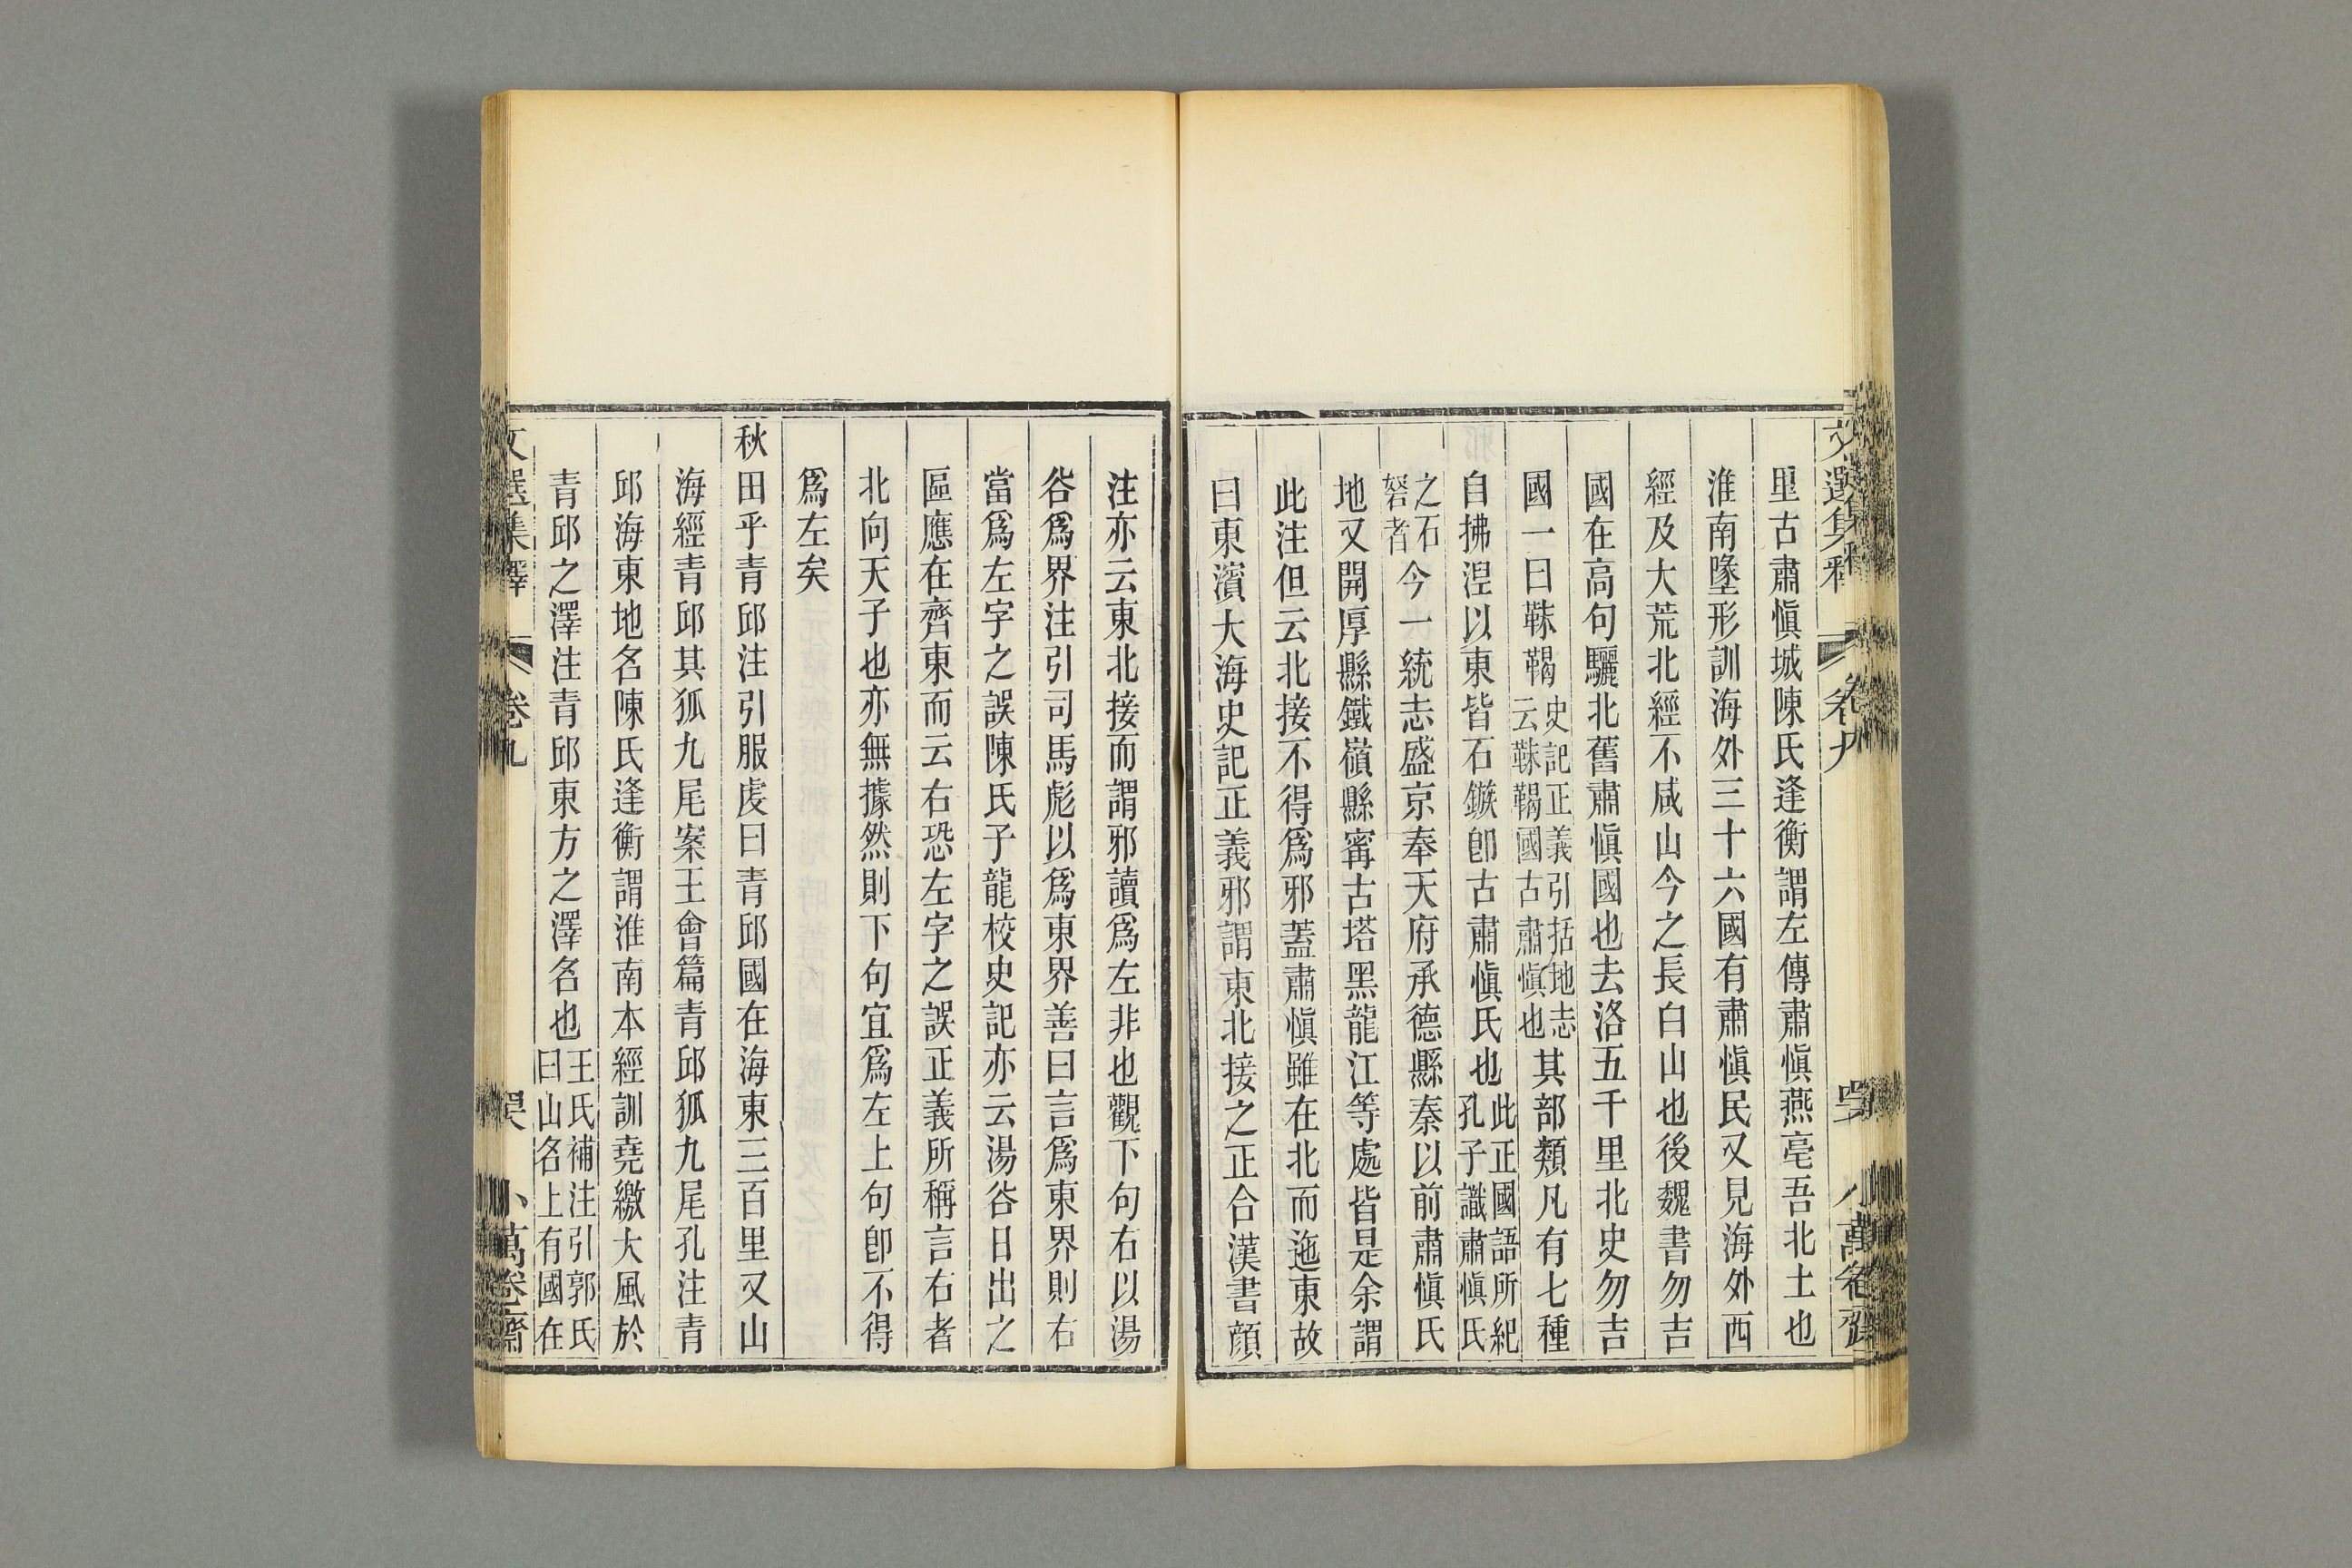 文選集釋 卷九 小萬卷齋
里古肅愼城陳氏逢衡謂左傳肅愼燕亳吾北土也
淮南墬形訓海外三十六國有肅愼民又見海外西
經及大荒北經不咸山今之長白山也後魏書勿吉
國在高句驪北舊肅愼國也去洛五千里北史勿吉
國一曰靺鞨史記正義引括地志云靺鞨國古肅愼也其部類凡有七種
自拂涅以東皆石鏃卽古肅愼氏也此正國語所紀孔子識肅愼氏
之石砮者今一統志盛京奉天府承德縣秦以前肅愼氏
地又開厚縣鐵嶺縣寗古塔黑龍江等處皆是余謂
此注但云北接不得爲邪蓋肅愼雖在北而迤東故
曰東濱大海史記正義邪謂東北接之正合漢書顔
注亦云東北接而謂邪讀爲左非也觀下句右以湯
谷爲界注引司馬彪以爲東界善曰言爲東界則右
當爲左字之誤陳氏子龍校史記亦云湯谷日出之
區應在齊東而云右恐左字之誤正義所稱言右者
北向天子也亦無據然則下句宜爲左上句卽不得
爲左矣
秋田乎青邱注引服虔曰青邱國在海東三百里又山
海經青邱其狐九尾案王會篇青邱狐九尾孔注青
邱海東地名陳氏逢衡謂淮南本經訓堯繳大風於
青邱之澤注青邱東方之澤名也王氏補注引郭氏曰山名上有國在
文選集釋 卷九 小萬卷齋